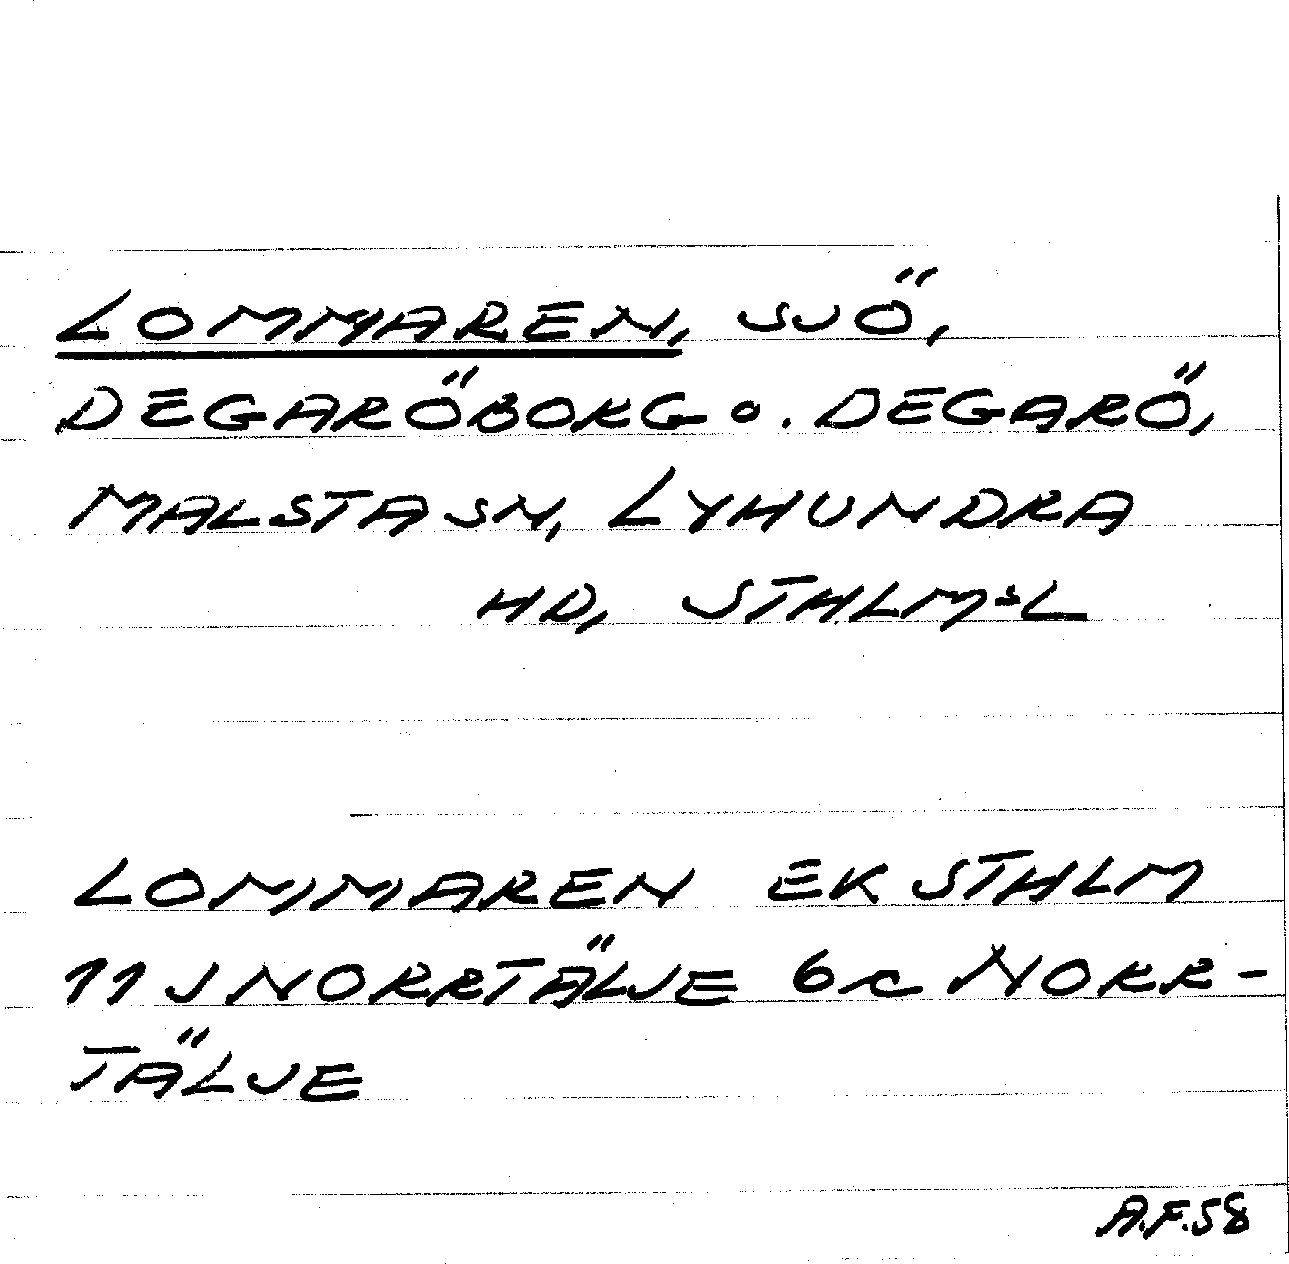 LOMMAREN, SJÖ,
DEGARÖBORG o. DEGARÖ,
MALSTA SN, LYHUNDRA
HD, STHLM:S L
LOMMAREN EK STHLM
11J NORRTÄLJE 6c NORR-
TÄLJE
A.F.58